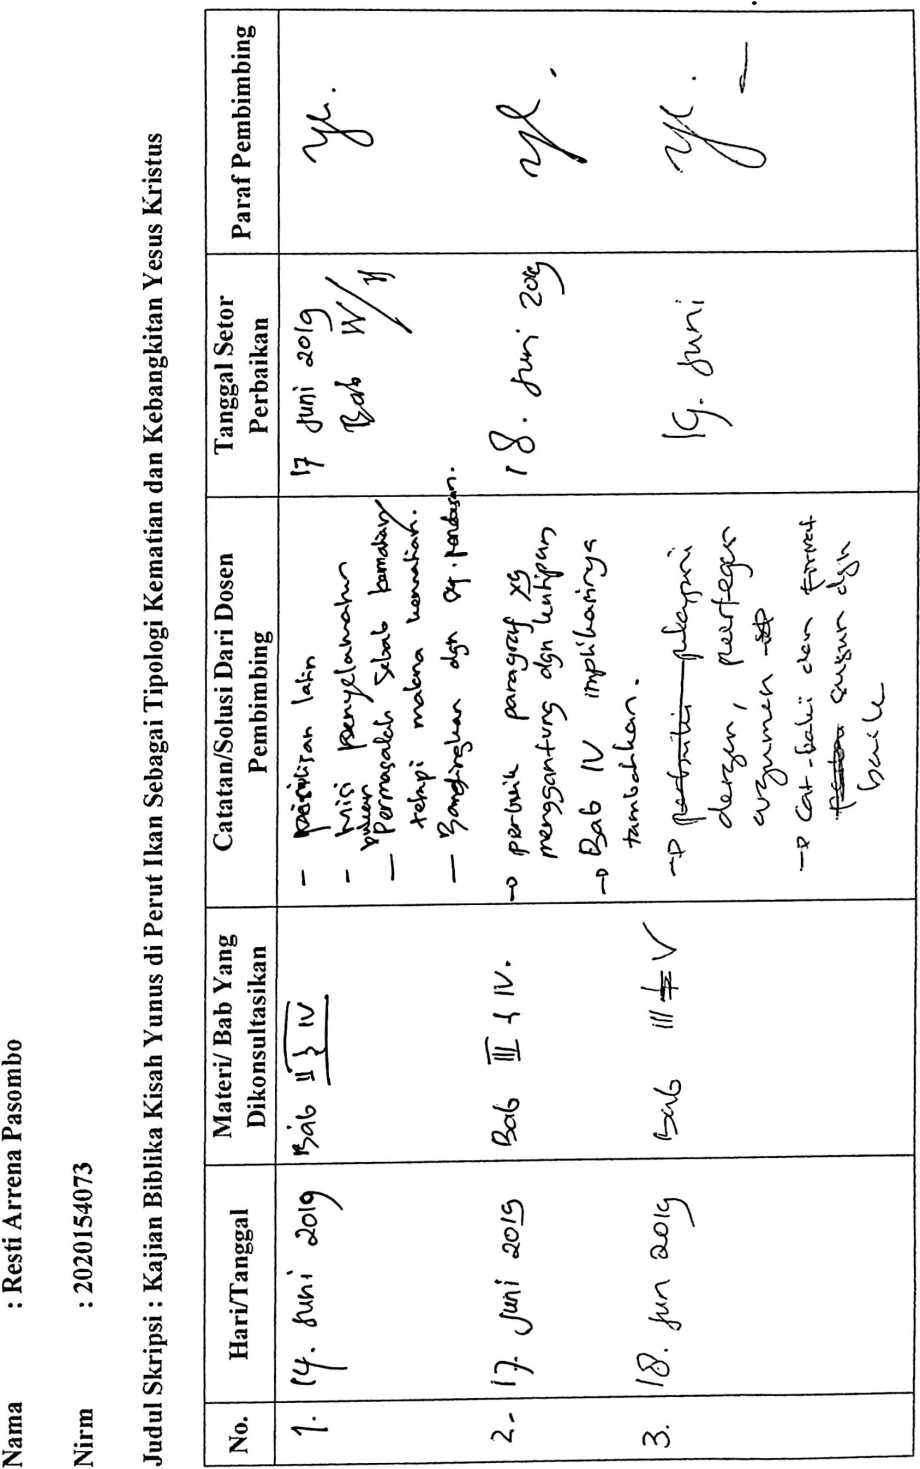 Nama : Resti Arrena Pasombo
Nirm : 2020154073
Judul Skripsi : Kajian Biblika Kisah Yunus di Perut Ikan Sebagai Tipologi Kematian dan Kebangkitan Yesus Kristus
No. Hari/Tanggal Materi/ Bab Yang Dikonsultasikan Catatan/Solusi Dari Dosen Pembimbing Tanggal Setor Perbaikan Paraf Pembimbing
1. 14. Juni 2019
Bab II & IV
- penulisan lain
- Misi penyelamatan
bukan
- Permasalah sebab kematian
tetapi makna kematian.
- Bandingkan dgn
17 Juni 2019
Bab IV/
2. 17. Juni 2019
Bab III & IV.
→ perbaiki paragraf yg
menggantung dgn kutipan
→ Bab IV implikasinya
tambahkan.
18. Juni 2019
3. 18. Jun 2019
Bab III V
→
pertegas
argumen
→ Cat-kaki dan format
susun dgn
baik
19. Juni